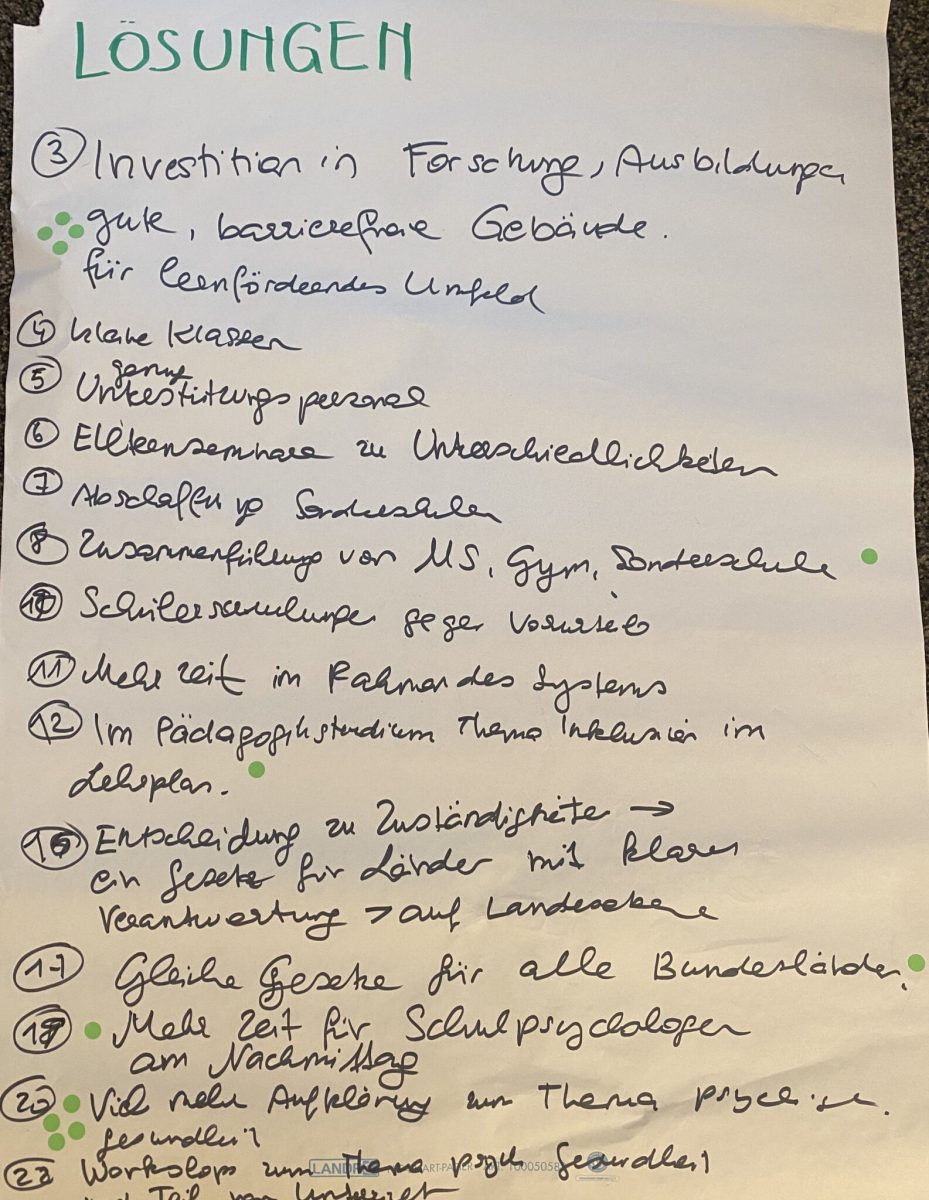 LÖSUNGEN
③ Investition in Forschung, Ausbildungen
gute, barrierefreie Gebäude.
für lernförderndes Umfeld
④ kleine Klassen
genug
⑤ Unterstützungspersonal
⑥ Elternseminare zu Unterschiedlichkeiten
⑦ Abschaffen von Sonderschulen
⑧ Zusammenführung von MS, Gym, Sonderschule
Schülersammlungen gegen Vorurteile
⑪ Mehr Zeit im Rahmen des Systems
⑫ Im Pädagogikstudium Thema Inklusion im
Lehrplan.
Entscheidung zu Zuständigkeite →
ein Gesetz für Länder mit klarer
Verantwortung > auf Landesebene
⑰ Gleiche Gesetze für alle Bundesländer.
Mehr Zeit für Schulpsychologen
am Nachmittag
⑳ Viel mehr Aufklärung zum Thema psychische.
gesundheit
Workshops zum Thema psych gesundheit
Teil vom Unterricht